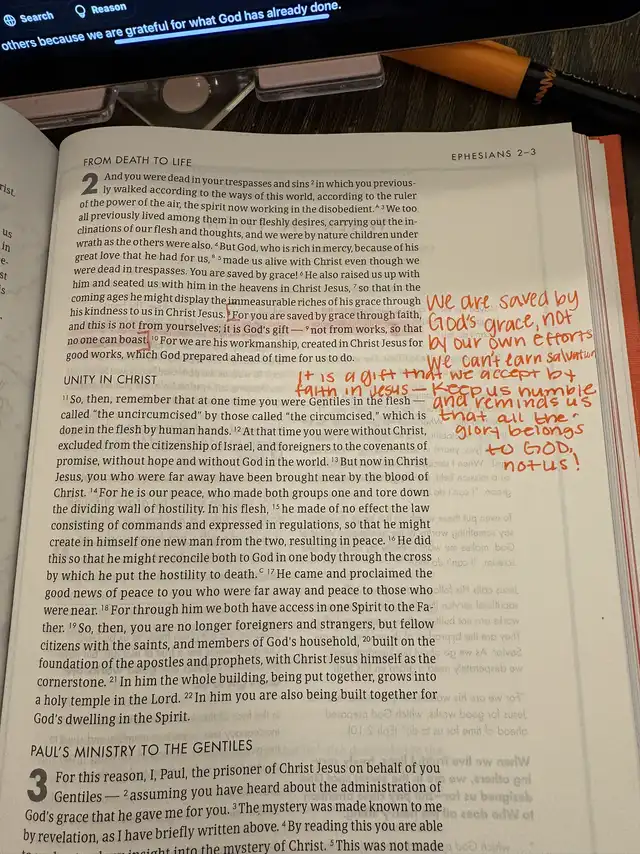 Search
Reason
others because we are grateful for what God has already done.
FROM DEATH TO LIFE
EPHESIANS 2–3
2 And you were dead in your trespasses and sins ² in which you previous-
ly walked according to the ways of this world, according to the ruler
of the power of the air, the spirit now working in the disobedient.ᴬ ³ We too
all previously lived among them in our fleshly desires, carrying out the in-
clinations of our flesh and thoughts, and we were by nature children under
wrath as the others were also. ⁴ But God, who is rich in mercy, because of his
great love that he had for us,ᴮ ⁵ made us alive with Christ even though we
were dead in trespasses. You are saved by grace! ⁶ He also raised us up with
him and seated us with him in the heavens in Christ Jesus, ⁷ so that in the
coming ages he might display the immeasurable riches of his grace through
his kindness to us in Christ Jesus. ⁸ For you are saved by grace through faith,
and this is not from yourselves; it is God's gift — ⁹ not from works, so that
no one can boast. ¹⁰ For we are his workmanship, created in Christ Jesus for
good works, which God prepared ahead of time for us to do.
We are saved by
God's grace, not
by our own efforts
We can't earn salvation
It is a gift that we accept by
faith in Jesus — Keep us humble
and reminds us
that all the
glory belongs
to GOD,
not us!
UNITY IN CHRIST
¹¹ So, then, remember that at one time you were Gentiles in the flesh —
called "the uncircumcised" by those called "the circumcised," which is
done in the flesh by human hands. ¹² At that time you were without Christ,
excluded from the citizenship of Israel, and foreigners to the covenants of
promise, without hope and without God in the world. ¹³ But now in Christ
Jesus, you who were far away have been brought near by the blood of
Christ. ¹⁴ For he is our peace, who made both groups one and tore down
the dividing wall of hostility. In his flesh, ¹⁵ he made of no effect the law
consisting of commands and expressed in regulations, so that he might
create in himself one new man from the two, resulting in peace. ¹⁶ He did
this so that he might reconcile both to God in one body through the cross
by which he put the hostility to death.ᶜ ¹⁷ He came and proclaimed the
good news of peace to you who were far away and peace to those who
were near. ¹⁸ For through him we both have access in one Spirit to the Fa-
ther. ¹⁹ So, then, you are no longer foreigners and strangers, but fellow
citizens with the saints, and members of God's household, ²⁰ built on the
foundation of the apostles and prophets, with Christ Jesus himself as the
cornerstone. ²¹ In him the whole building, being put together, grows into
a holy temple in the Lord. ²² In him you are also being built together for
God's dwelling in the Spirit.
PAUL'S MINISTRY TO THE GENTILES
3 For this reason, I, Paul, the prisoner of Christ Jesus on behalf of you
Gentiles — ² assuming you have heard about the administration of
God's grace that he gave me for you. ³ The mystery was made known to me
by revelation, as I have briefly written above. ⁴ By reading this you are able
insight into the mystery of Christ. ⁵ This was not made